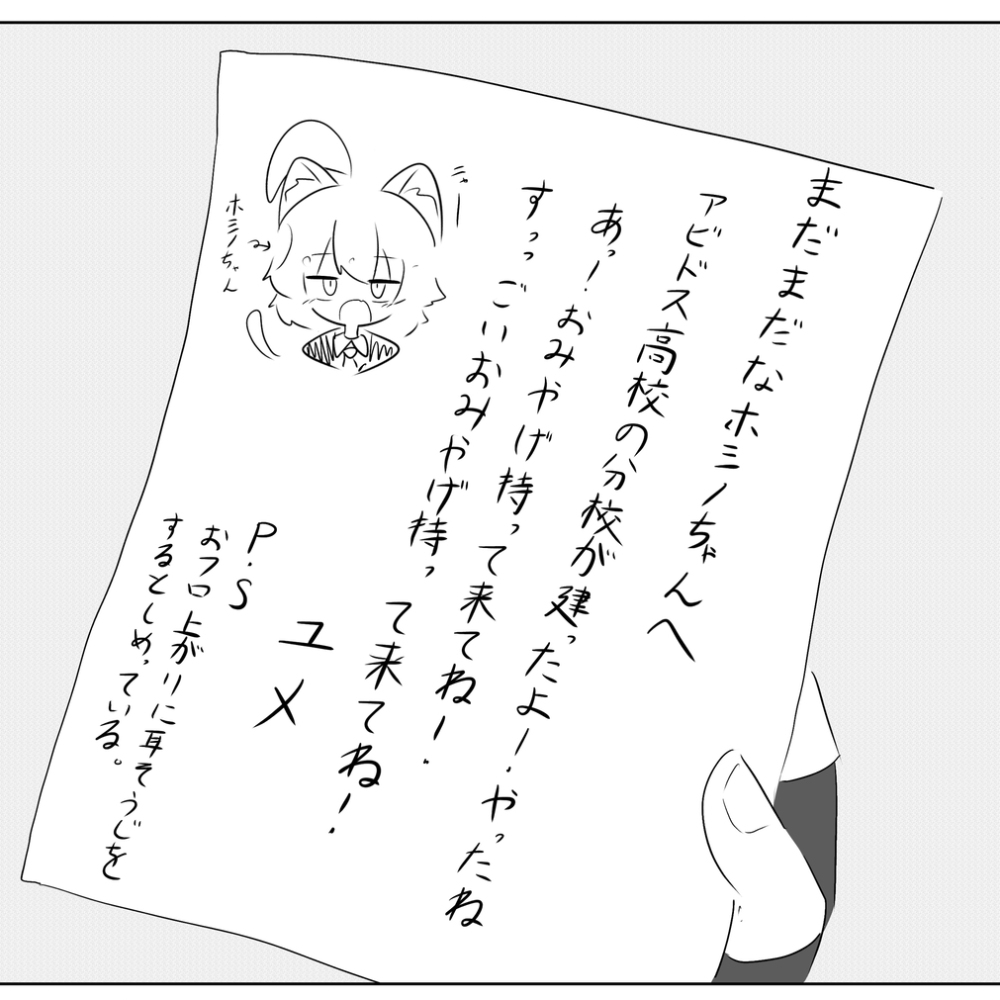 まだまだなホシノちゃんへ
アビドス高校の分校が建ったよー！やったね
あっ！おみやげ持って来てねー！
すっっごいおみやげ持って来てねー！
ユメ
P.S
おフロ上がりに耳そうじを
するとしめっている。
ホシノちゃん